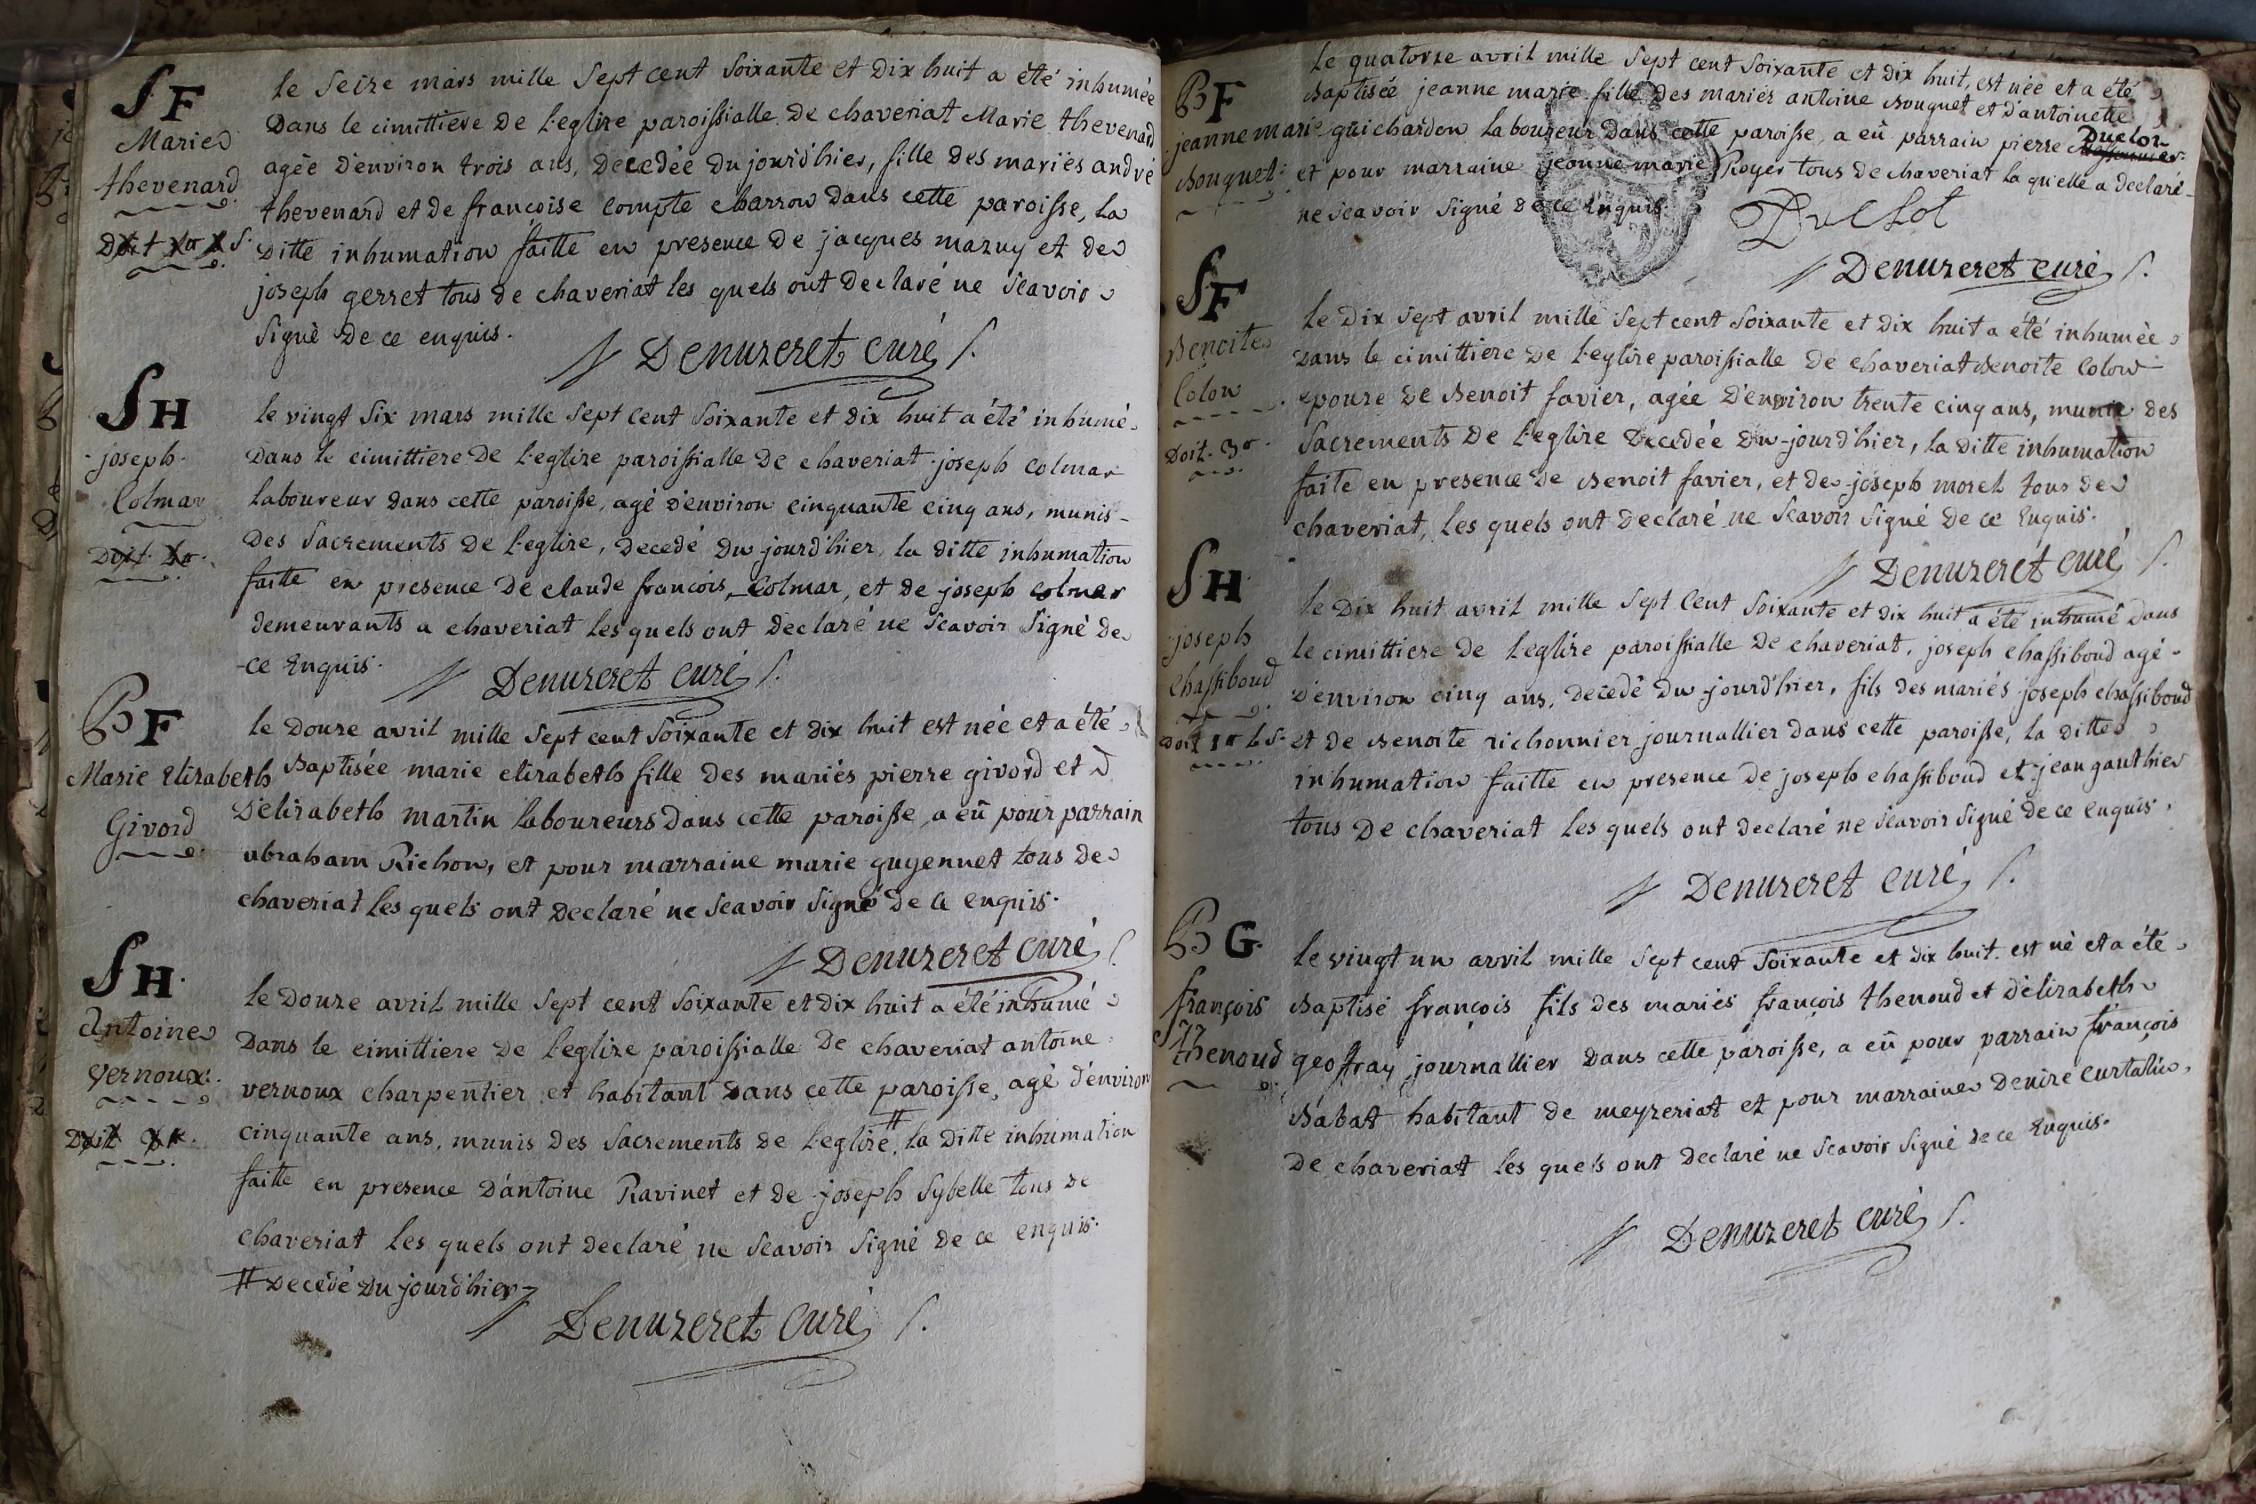 SF
Marie
thevenard
le Seize mars mille Sept cent Soixante et Dix huit a été inhumée
Dans le cimittiere De l'eglize paroissialle De chaveriat Marie thevenard
agée d'environ trois ans, Decedée Du jourd'hier, fille des mariés andré
thevenard et de françoise Compte charron Dans cette paroisse, La
Ditte inhumation faitte en presence De jacques mazuy et de
joseph gerret tous de chaveriat les quels ont declaré ne Scavoir
Signé De ce enquis.
Denuzeret curé
SH
joseph
Colmar
le vingt Six mars mille Sept cent Soixante et dix huit a été inhumé
Dans le cimittiere De l'eglize paroissialle De chaveriat joseph Colmar
laboureur dans cette paroisse, agé d'environ cinquante cinq ans, munis
Des Sacrements De l'eglize, Decedé Du jourd'hier, la ditte inhumation
faitte en presence De claude françois Colmar, et de joseph Colmar
demeurants a chaveriat les quels ont declaré ne Scavoir Signé de
ce Enquis.
Denuzeret curé
BF
Marie Elizabeth
Givord
le Douze avril mille Sept cent Soixante et dix huit est née et a été
Baptisée marie elizabeth fille des mariés pierre givord et
D'elizabeth martin laboureurs Dans cette paroisse, a eû pour parrain
abraham Richon, et pour marraine marie guyennet tous de
chaveriat les quels ont Declaré ne Scavoir Signé De ce enquis.
Denuzeret curé
SH.
Antoine
Vernoux.
le Douze avril mille Sept cent Soixante et dix huit a été inhumé
Dans le cimittiere De l'eglize paroissialle De chaveriat antoine
vernoux charpentier et habitant Dans cette paroisse, agé d'environ
cinquante ans, munis Des Sacrements De l'eglize, # la Ditte inhumation
faitte en presence D'antoine Ravinet et de joseph Sybelle tous de
chaveriat les quels ont declaré ne Scavoir Signé De ce enquis.
# Decedé Du jourd'hier
Denuzeret curé
BF
jeanne marie
Bouquet
le quatorze avril mille Sept cent Soixante et dix huit, est née et a été
Baptisée jeanne marie fille des mariés antoine Bouquet et d'antoinette
guichardon laboureur Dans cette paroisse, a eû parrain pierre Duclot
et pour marraine jeanne marie Royer tous De chaveriat la qu'elle a declaré
ne Scavoir Signé De ce Enquis.
Duclot
Denuzeret curé
SF
Benoite
Colon
Doit 3#
le Dix Sept avril mille Sept cent Soixante et dix huit a été inhumée
Dans le cimittiere De l'eglize paroissialle De chaveriat Benoite Colon
epouze De Benoit favier, agée D'environ trente cinq ans, munie des
Sacrements De l'eglize Decedée Du jourd'hier, la ditte inhumation
faite en presence De Benoit favier, et de joseph morel tous de
chaveriat, les quels ont Declaré ne Scavoir Signé De ce Enquis.
Denuzeret curé
SH
joseph
Chassiboud
le Dix huit avril mille Sept Cent Soixante et dix huit a été inhumé Dans
le cimittiere De l'eglize paroissialle De chaveriat, joseph chassiboud agé
d'environ cinq ans, Decedé Du jourd'hier, fils des mariés joseph chassiboud
et de Benoite richonnier journallier dans cette paroisse, la ditte
inhumation faitte en presence De joseph chassiboud et jean gauthier
tous De chaveriat les quels ont declaré ne Scavoir Signé De ce enquis.
Denuzeret curé
BG.
françois
thenoud
le vingt un avril mille Sept cent Soixante et dix huit. est né et a été
Baptisé françois fils des mariés françois thenoud et D'elizabeth
geoffray journallier Dans cette paroisse, a eû pour parrain françois
Babat habitant De meyzeriat et pour marraine Denize curtalin
De chaveriat les quels ont Declaré ne Scavoir Signé De ce Enquis.
Denuzeret curé